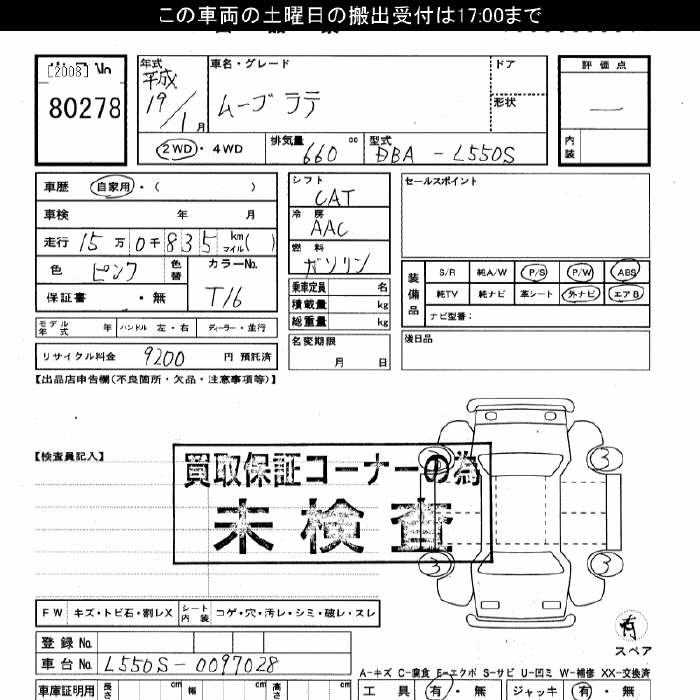 この車両の土曜日の搬出受付は17:00まで
[2008]
80278
年式 車名・グレード ドア 評価点
平成
19/1月 ムーブ ラテ 形状 —
2WD・4WD 排気量 660 cc 型式 DBA - L550S 内装
車歴 自家用・( ) シフト CAT セールスポイント
車検 年 月 冷房 AAC
走行 15万0千835 km マイル( ) 燃料 ガソリン
色 ピンク 色替 カラーNo. T16
装備品 S/R 純A/W P/S P/W ABS
純TV 純ナビ 革シート 外ナビ エアB
ナビ型番:
保証書 ・無
乗車定員 名
積載量 kg
総重量 kg
モデル年式 年 ハンドル 左・右 ディーラー・並行
名変期限 月 日 後日品
リサイクル料金 9200 円 預託済
【出品店申告欄(不良箇所・欠品・注意事項等)】
【検査員記入】
買取保証コーナーの為
未検査
3 3
3 3
有
スペア
FW キズ・トビ石・割レX シート内装 コゲ・穴・汚レ・シミ・破レ・スレ
登録 No.
車台 No. L550S-0097028
A-キズ C-腐食 E-エクボ S-サビ U-凹ミ W-補修 XX-交換済
車庫証明用 長さ cm 幅 cm 高さ cm 工具 有・無 ジャッキ 有・無